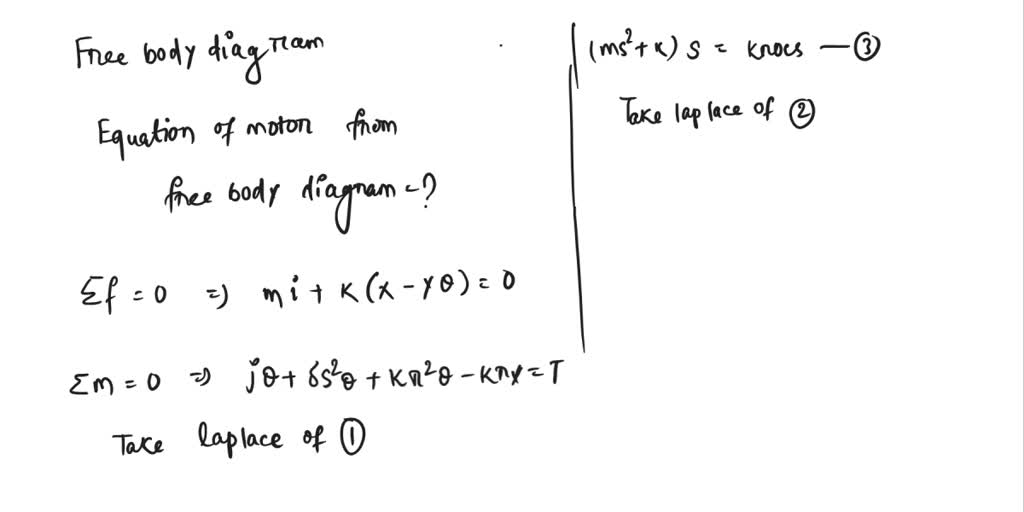 Free body diagram
Equation of motor from
free body diagram = ?
Σf = 0 ⇒ mi + K(x - yθ) = 0
Σm = 0 ⇒ jθ + δs²θ + Kr²θ - Kry = T
Take laplace of ①
(ms² + K) s = Krocs — ③
Take laplace of ②